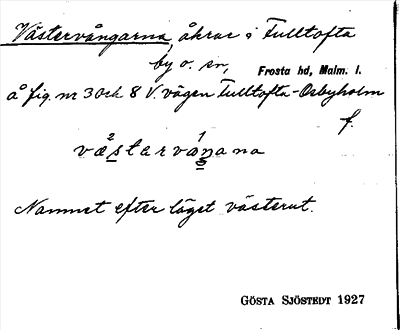 Västervångarna, åkrar i Fulltofta
by o. sn, Frosta hd, Malm. l.
å fig. nr 3 och 8 V. vägen Fulltofta-Osbyholm
f.
væstarvaŋana
Namnet efter läget västerut.
GÖSTA SJÖSTEDT 1927